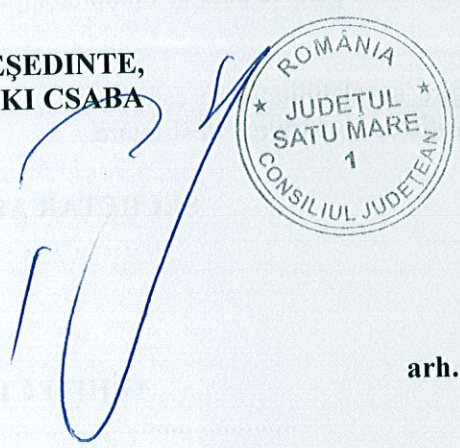 EȘEDINTE,
KI CSABA
ROMÂNIA
* JUDEȚUL *
SATU MARE
1
CONSILIUL JUDEȚEAN
arh.